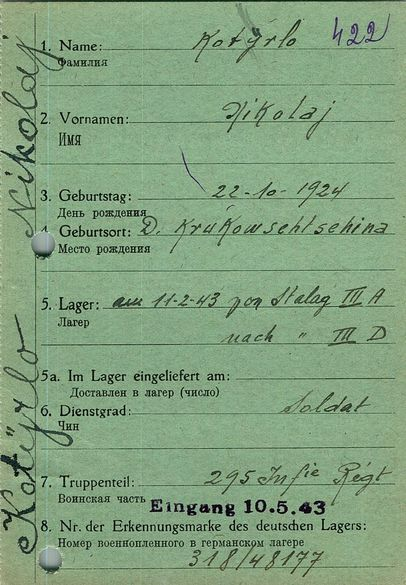 422
1. Name: Kotÿrlo
Фамилия
2. Vornamen: Nikolaj
Имя
3. Geburtstag: 22-10-1924
День рождения
4. Geburtsort: D. Krukowschtschina
Место рождения
5. Lager: am 11-2-43 von Stalag III A
Лагер
nach " III D
5a. Im Lager eingeliefert am:
Доставлен в лагер (число)
6. Dienstgrad: Soldat
Чин
7. Truppenteil: 295 Infie Regt
Воинская часть
Eingang 10.5.43
8. Nr. der Erkennungsmarke des deutschen Lagers:
Номер военнопленного в германском лагере
318/48177
Kotÿrlo Nikolaj